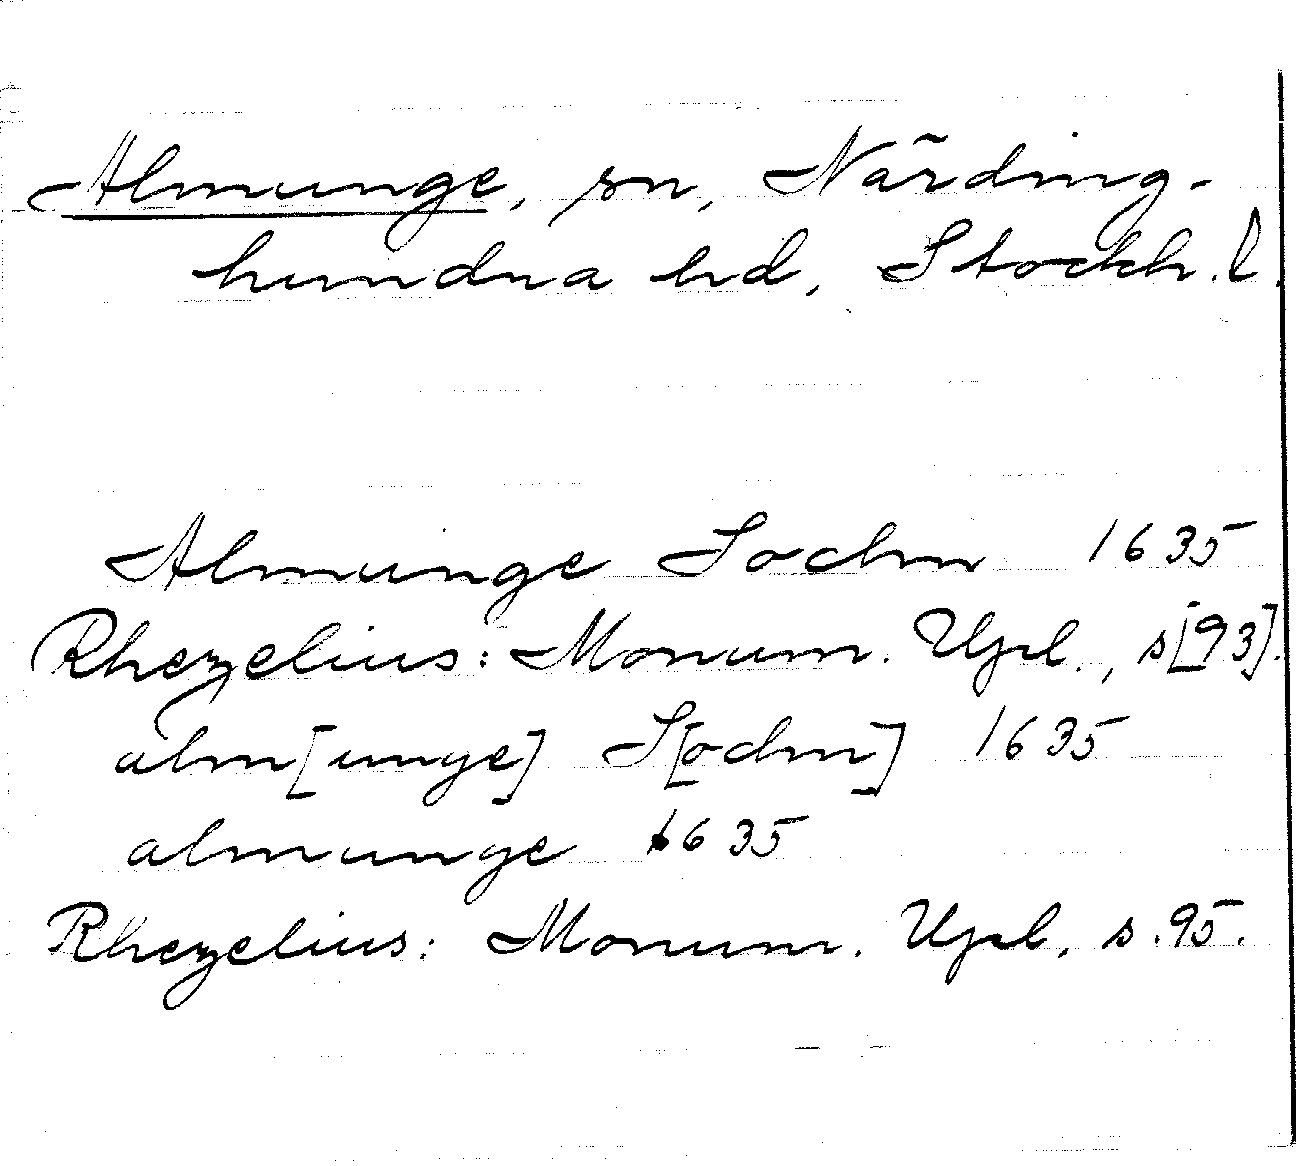 Almunge, sn, Närding-
hundra hd, Stockh. l.
Almunge Sochn 1635
Rhezelius: Monum. Upl., s[93].
alm[unge] S[ochn] 1635
almunge 1635
Rhezelius: Monum. Upl. s. 95.